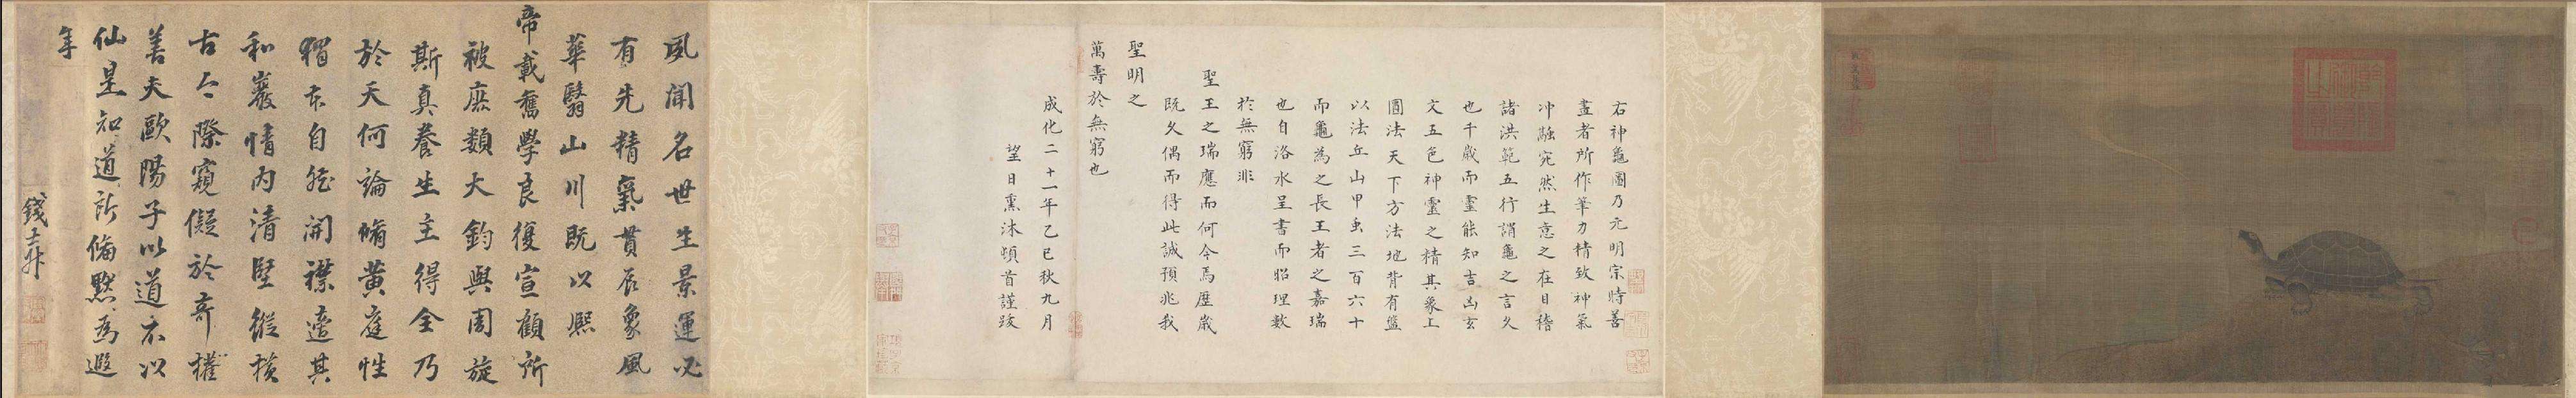 右神龜圖乃元明宗時善
畫者所作筆力精致神氣
冲融宛然生意之在目稽
諸洪範五行謂龜之言久
也千歲而靈能知吉凶玄
文五色神靈之精其象上
圓法天下方法地背有盤
以法丘山甲虫三百六十
而龜為之長王者之嘉瑞
也自洛水呈書而昭理數
於無窮非
聖王之瑞應而何今焉歷歲
既久偶而得此誠預兆我
聖明之
萬壽於無窮也
成化二十一年乙巳秋九月
望日熏沐頓首謹跋
夙聞名世生景運必
有先精氣貫辰象風
華翳山川既以熙
帝載舊學良復宣顧所
被庶類大鈞與周旋
斯真養生主得全乃
於天何論脩黃庭性
獨本自然開襟遙其
和巖情內清堅縱橫
古今際窺儗於奇權
善夫歐陽子以道不以
仙是知道所脩默為遐
年
錢